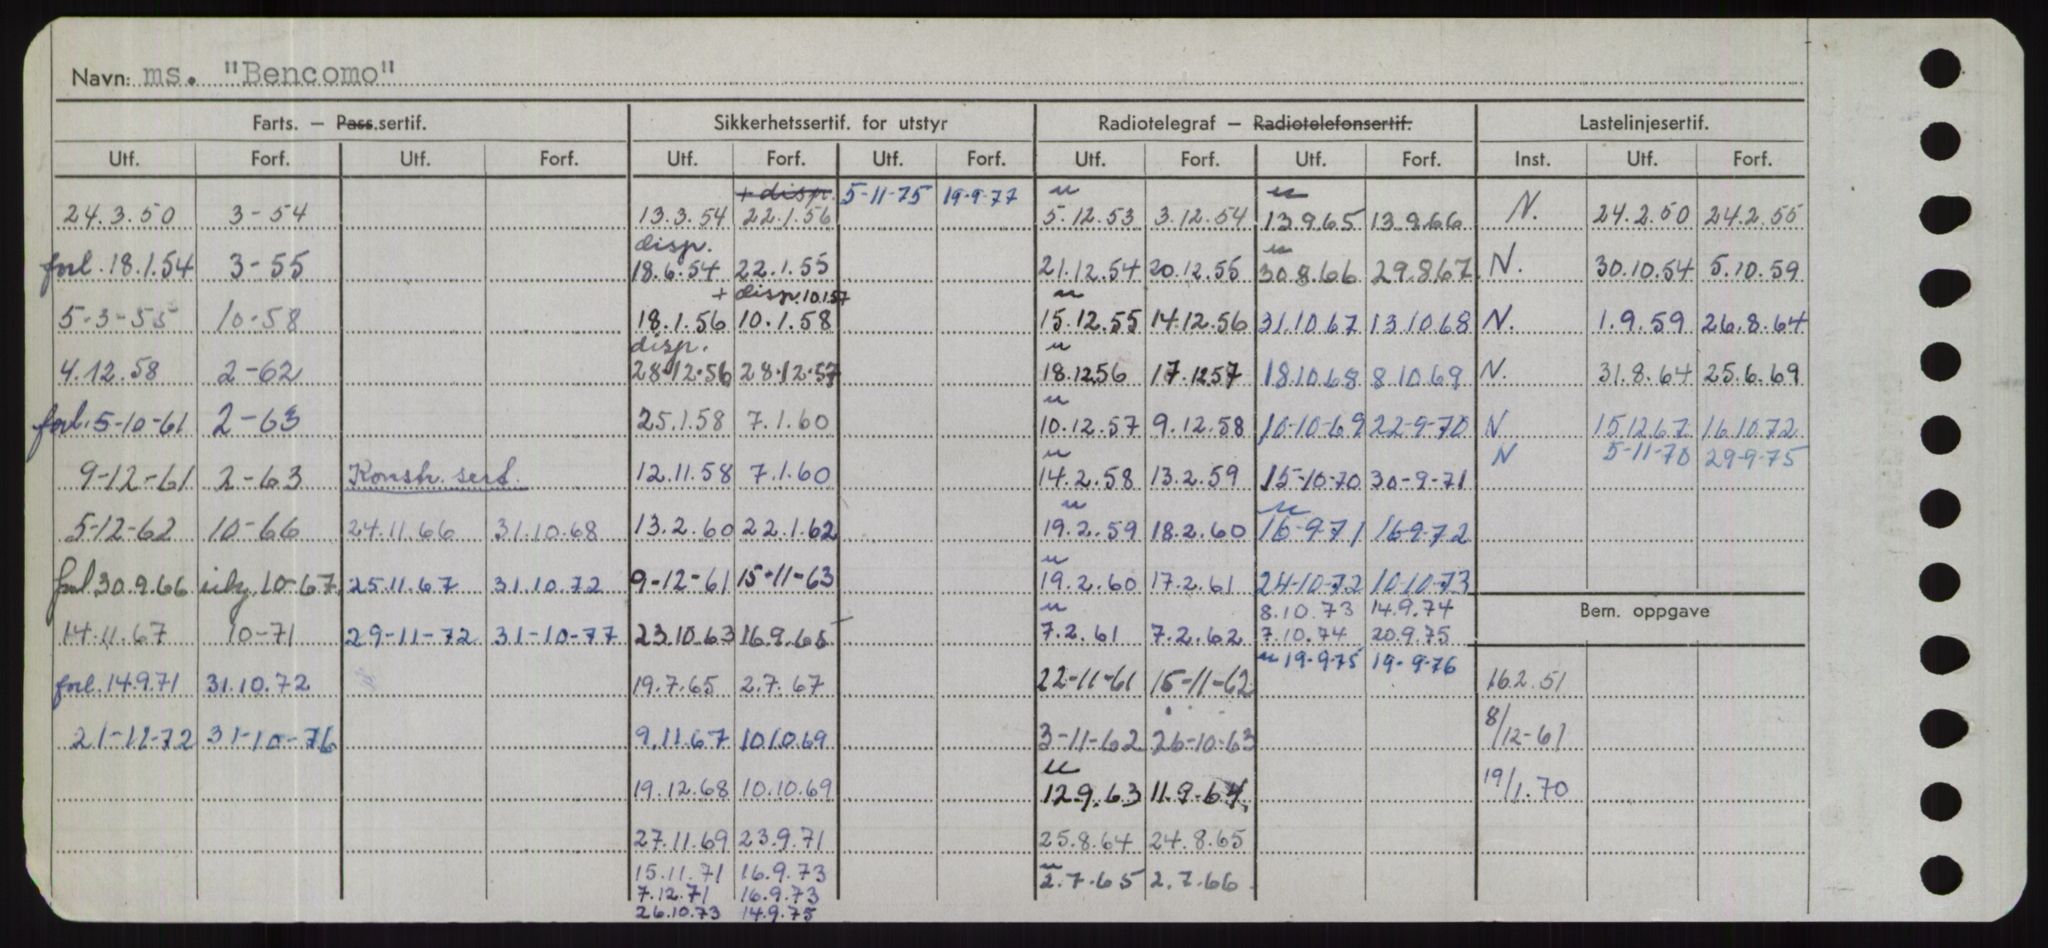 Navn: ms. "Bencomo"
Farts. — Pass.sertif. Sikkerhetssertif. for utstyr Radiotelegraf — Radiotelefonsertif. Lastelinjesertif.
Utf. Forf. Utf. Forf. Utf. Forf. Utf. Forf. Utf. Forf. Utf. Forf. Inst. Utf. Forf.
+ disp. 5-11-75 19-9-77 u u
24.3.50 3-54 13.3.54 22.1.56 5.12.53 3.12.54 13.9.65 13.9.66 N. 24.2.50 24.2.55
disp. u
forl. 18.1.54 3-55 18.6.54 22.1.55 21.12.54 20.12.55 30.8.66 29.8.67 N. 30.10.54 5.10.59
+ disp. 10.1.57 u
5-3-55 10-58 18.1.56 10.1.58 15.12.55 14.12.56 31.10.67 13.10.68 N. 1.9.59 26.8.64
disp. u
4.12.58 2-62 28.12.56 28.12.57 18.12.56 17.12.57 18.10.68 8.10.69 N. 31.8.64 25.6.69
u
forl. 5-10-61 2-63 25.1.58 7.1.60 10.12.57 9.12.58 10-10-69 22-9-70 N 15.12.67 16.10.72
u N 5-11-70 29-9-75
9-12-61 2-63 Konstr. sert. 12.11.58 7.1.60 14.2.58 13.2.59 15-10-70 30-9-71
u u
5-12-62 10-66 24.11.66 31.10.68 13.2.60 22.1.62 19.2.59 18.2.60 16-9-71 16-9-72
u
forl 30.9.66 10-67 25.11.67 31.10.72 9-12-61 15-11-63 19.2.60 17.2.61 24-10-72 10-10-73
u 8.10.73 14.9.74 Bem. oppgave
14.11.67 10-71 29-11-72 31-10-77 23.10.63 16.9.65 7.2.61 7.2.62 7.10.74 20.9.75
u 19-9-75 19-9-76
forl. 14.9.71 31.10.72 19.7.65 2.7.67 22-11-61 15-11-62 16.2.51
21-11-72 31-10-76 9.11.67 10.10.69 3-11-62 26-10-63 8/12-61
u
19.12.68 10.10.69 12.9.63 11.9.64 19/1.70
27.11.69 23.9.71 25.8.64 24.8.65
15.11.71 16.9.73 u
7.12.71 16.9.73 2.7.65 2.7.66
26.10.73 14.9.75